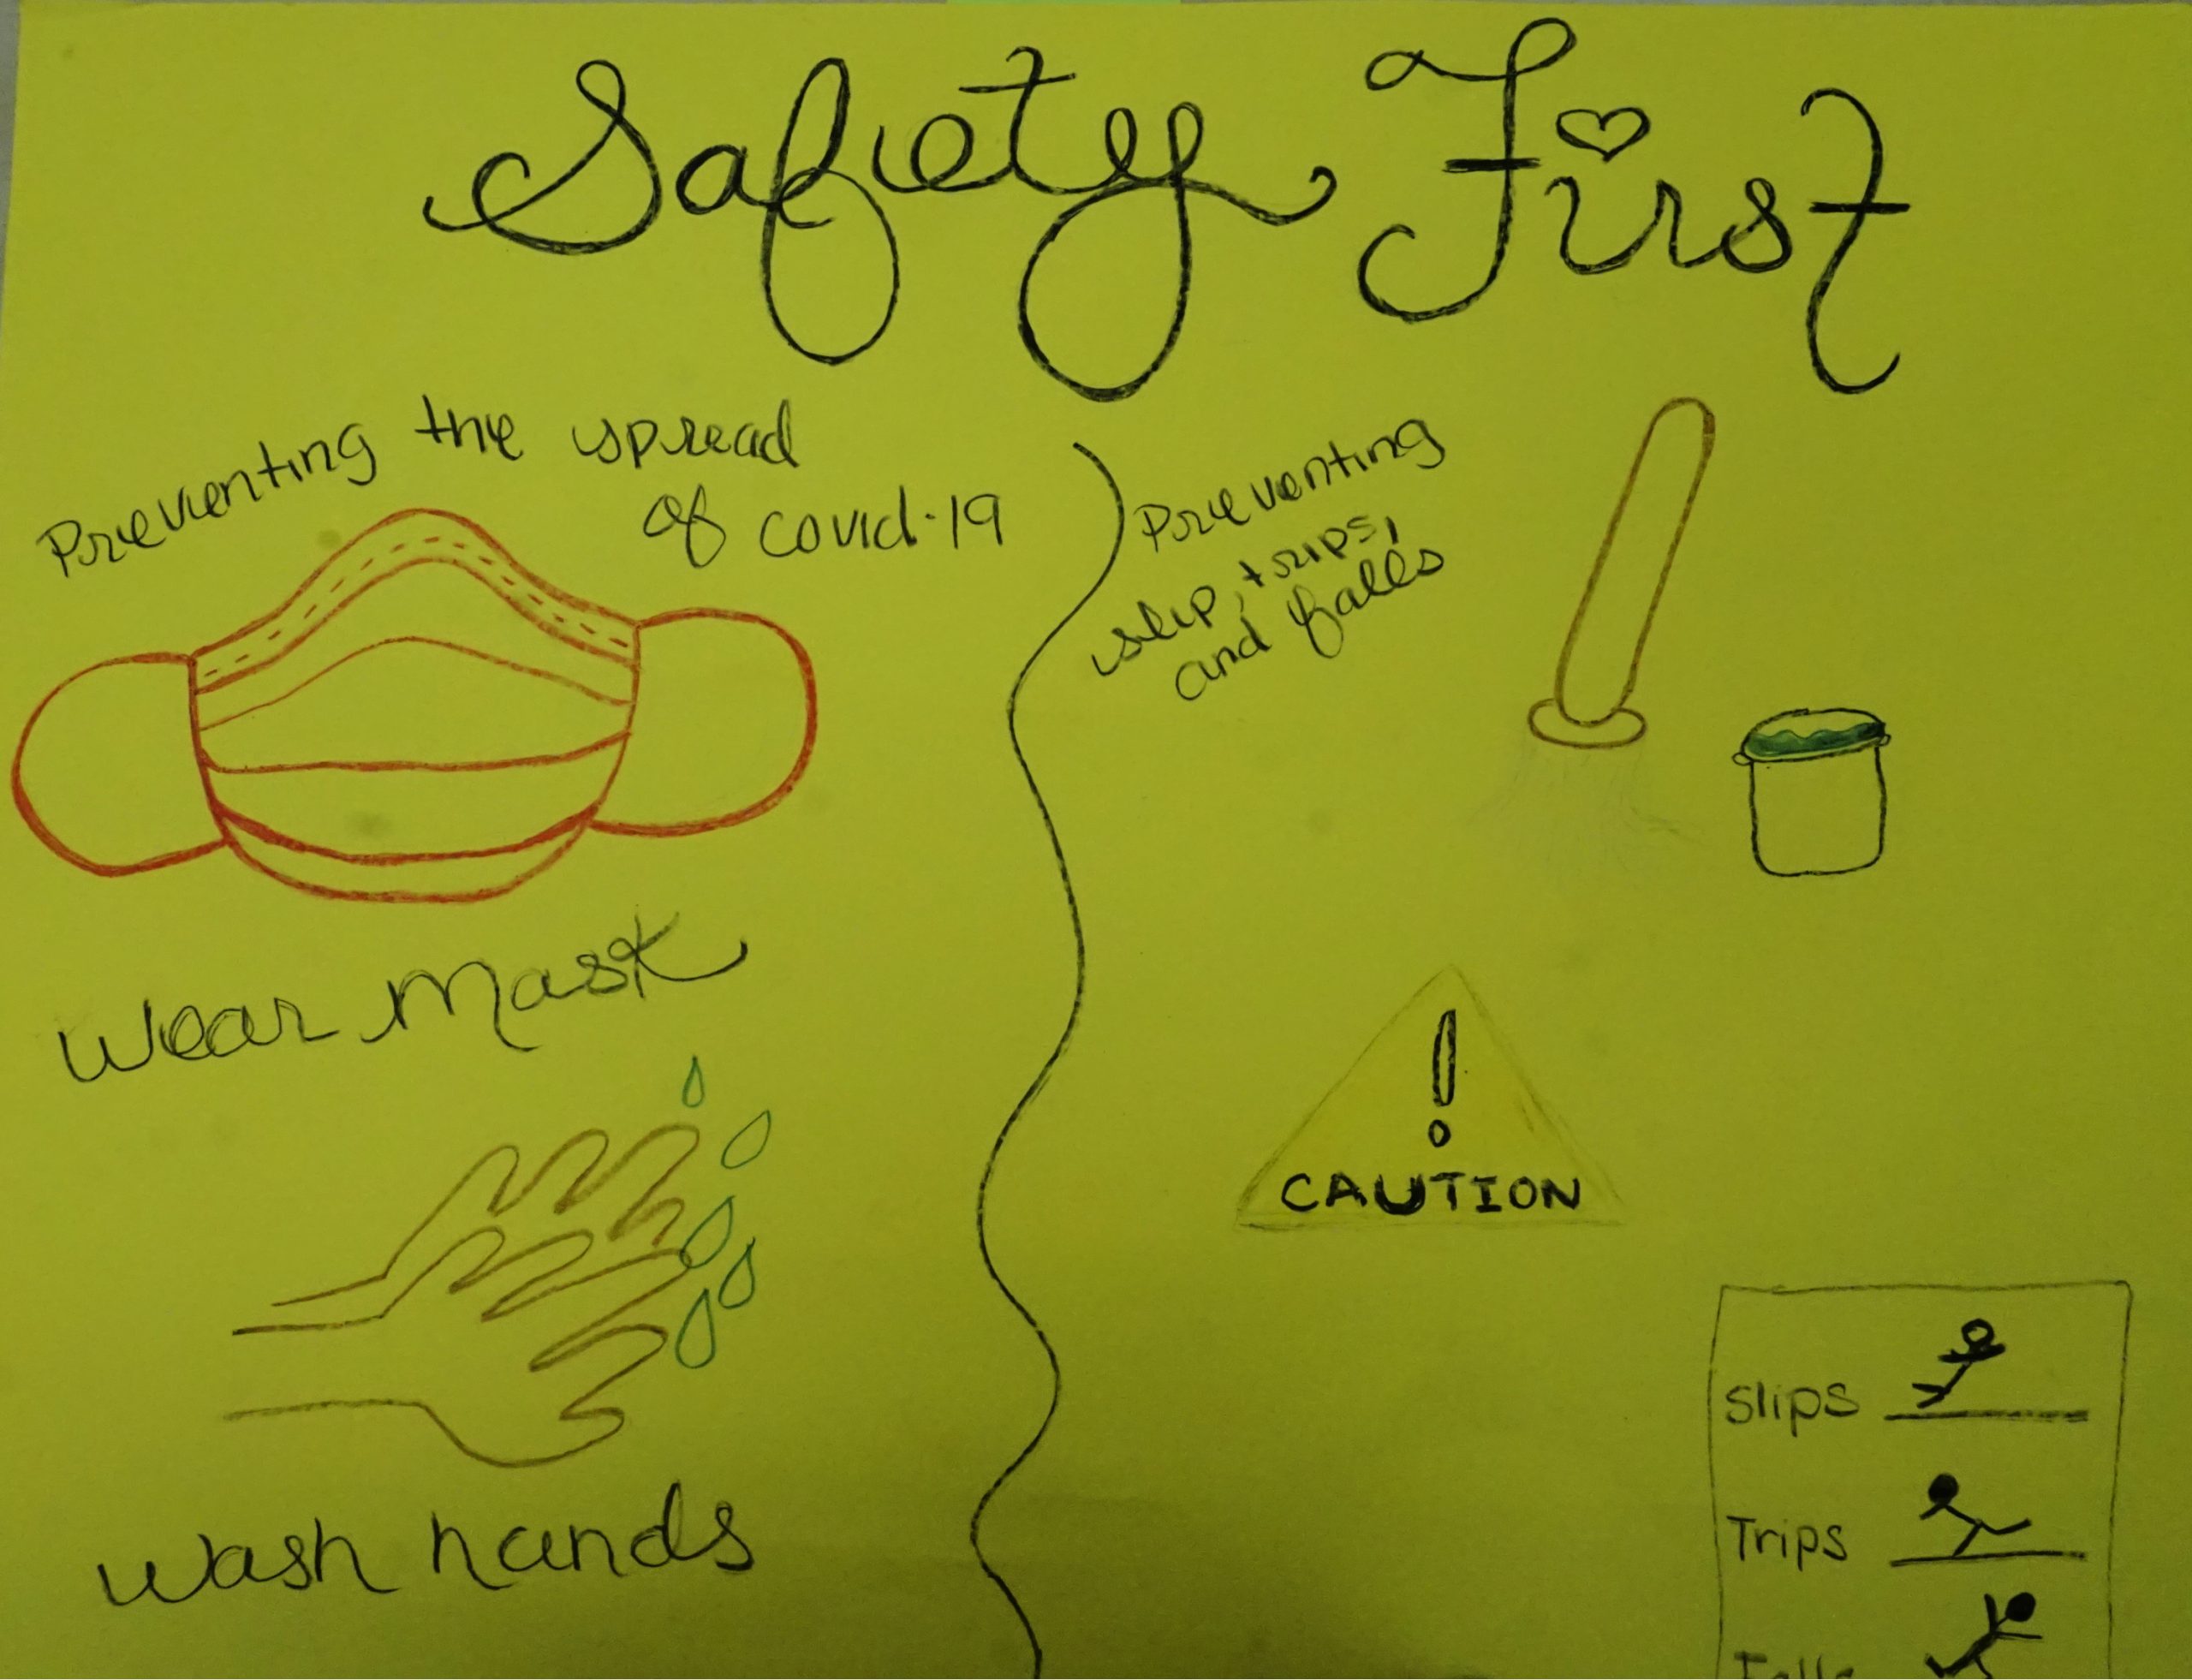 Safety First
Preventing the spread
of covid-19
Wear Mask
Wash hands
Preventing
slip, trips,
and falls
CAUTION
Slips
Trips
Falls